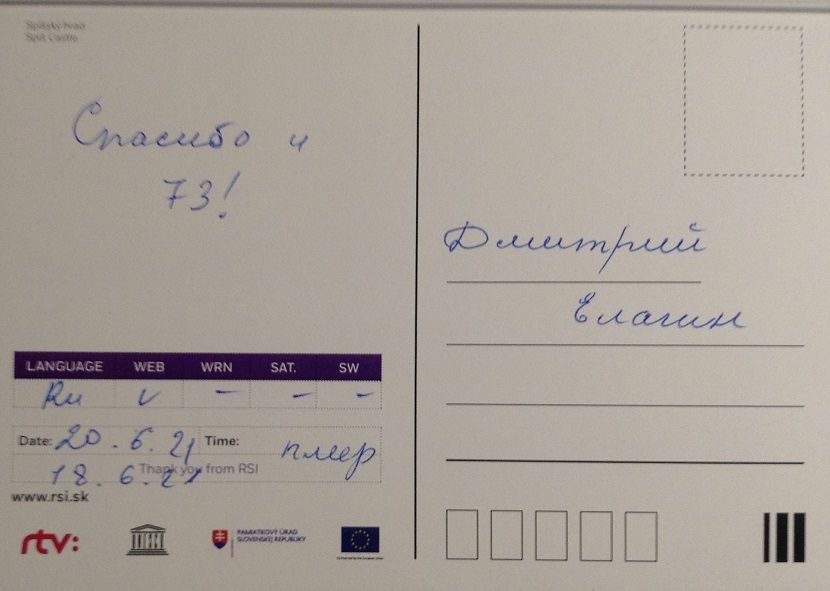 Spišský hrad
Spiš Castle
Спасибо и
73!
Дмитрий
Елагин
LANGUAGE WEB WRN SAT. SW
Ru v - - -
Date: 20.6.21 Time: плеер
18.6.21 Thank you from RSI
www.rsi.sk
rtv:
PAMIATKOVÝ ÚRAD
SLOVENSKEJ REPUBLIKY